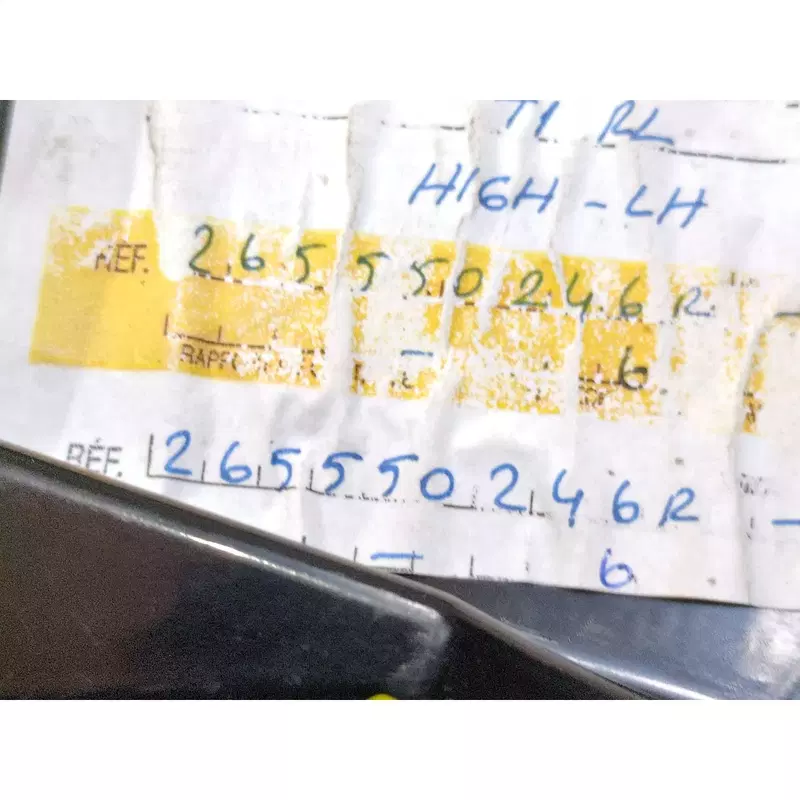 T1 RL
HIGH - LH
REF. 265550246R -
- 6
RÉF. 265550246R -
- 6